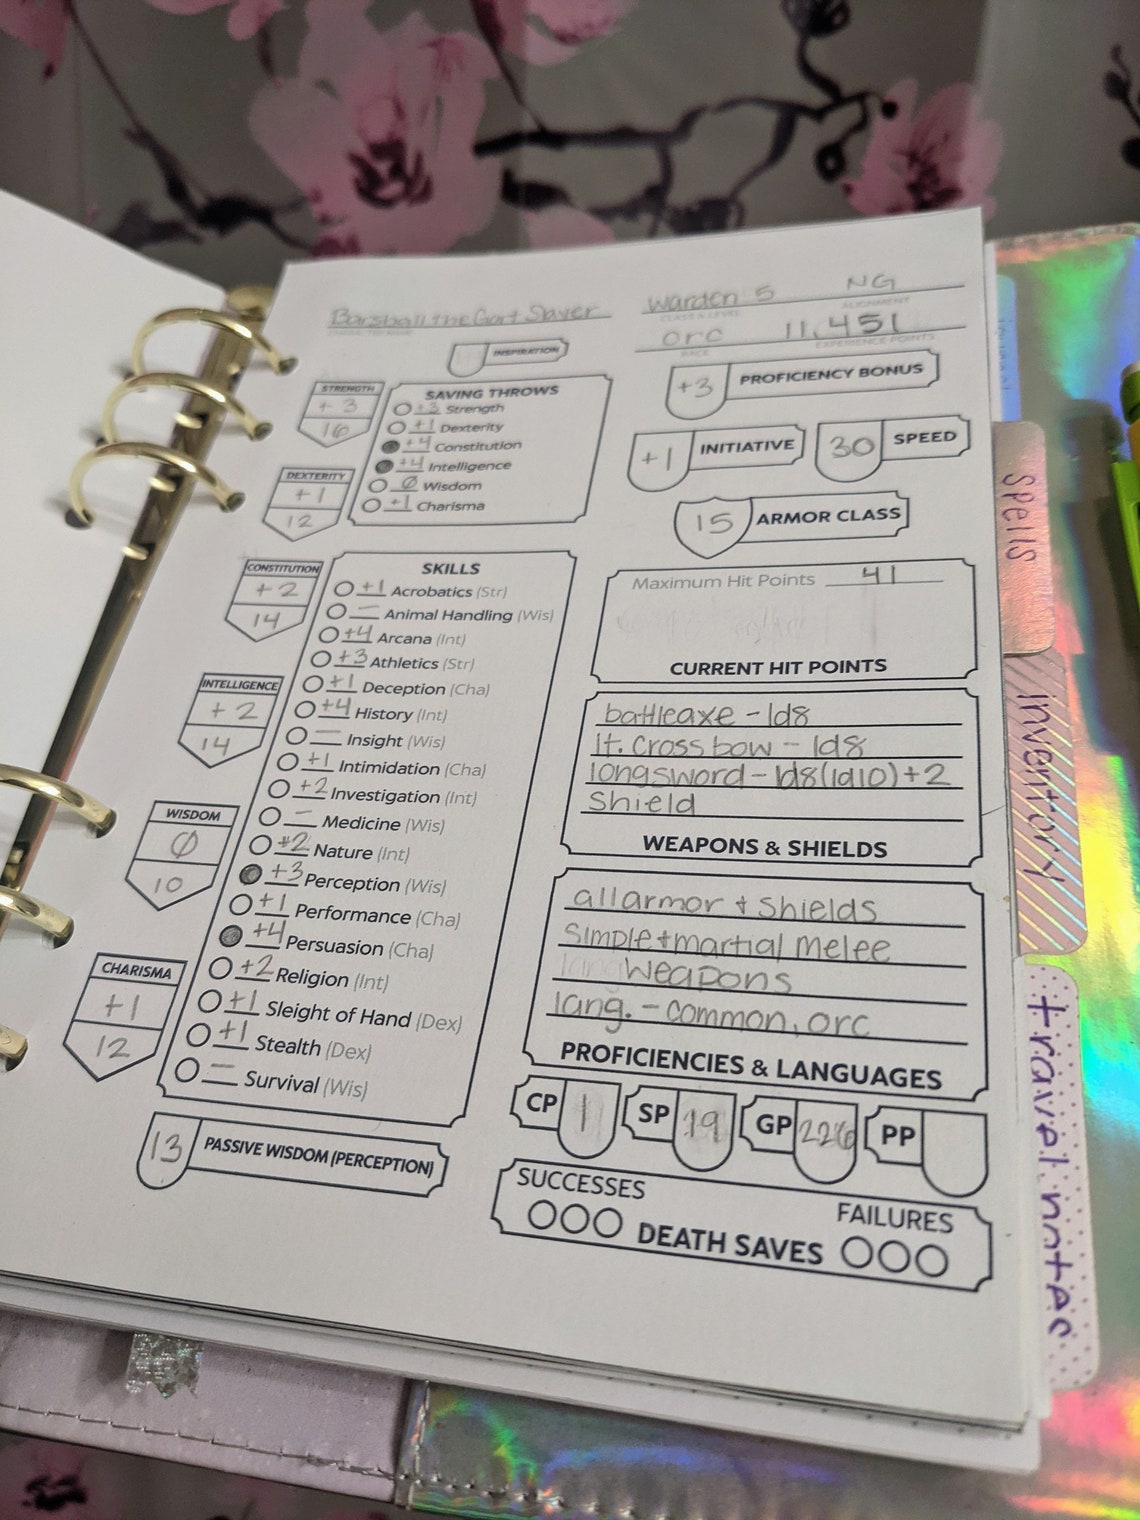 Barshall the Gart Slayer
warden 5 NG
CLASS & LEVEL ALIGNMENT
orc 11,451
RACE EXPERIENCE POINTS
INSPIRATION
+3 PROFICIENCY BONUS
STRENGTH
+3
16
SAVING THROWS
+3 Strength
+1 Dexterity
+4 Constitution
+4 Intelligence
Ø Wisdom
+1 Charisma
+1 INITIATIVE
30 SPEED
DEXTERITY
+1
12
15 ARMOR CLASS
CONSTITUTION
+2
14
SKILLS
+1 Acrobatics (Str)
— Animal Handling (Wis)
+4 Arcana (Int)
+3 Athletics (Str)
+1 Deception (Cha)
+4 History (Int)
— Insight (Wis)
+1 Intimidation (Cha)
+2 Investigation (Int)
— Medicine (Wis)
+2 Nature (Int)
+3 Perception (Wis)
+1 Performance (Cha)
+4 Persuasion (Cha)
+2 Religion (Int)
+1 Sleight of Hand (Dex)
+1 Stealth (Dex)
— Survival (Wis)
INTELLIGENCE
+2
14
WISDOM
Ø
10
CHARISMA
+1
12
13 PASSIVE WISDOM (PERCEPTION)
Maximum Hit Points 41
CURRENT HIT POINTS
battleaxe - 1d8
lt. crossbow - 1d8
longsword - 1d8(1d10)+2
Shield
WEAPONS & SHIELDS
all armor + shields
simple + martial melee
weapons
lang. - common, orc
PROFICIENCIES & LANGUAGES
CP 1 SP 19 GP 226 PP
SUCCESSES
FAILURES
DEATH SAVES
spells
inventory
travel notes